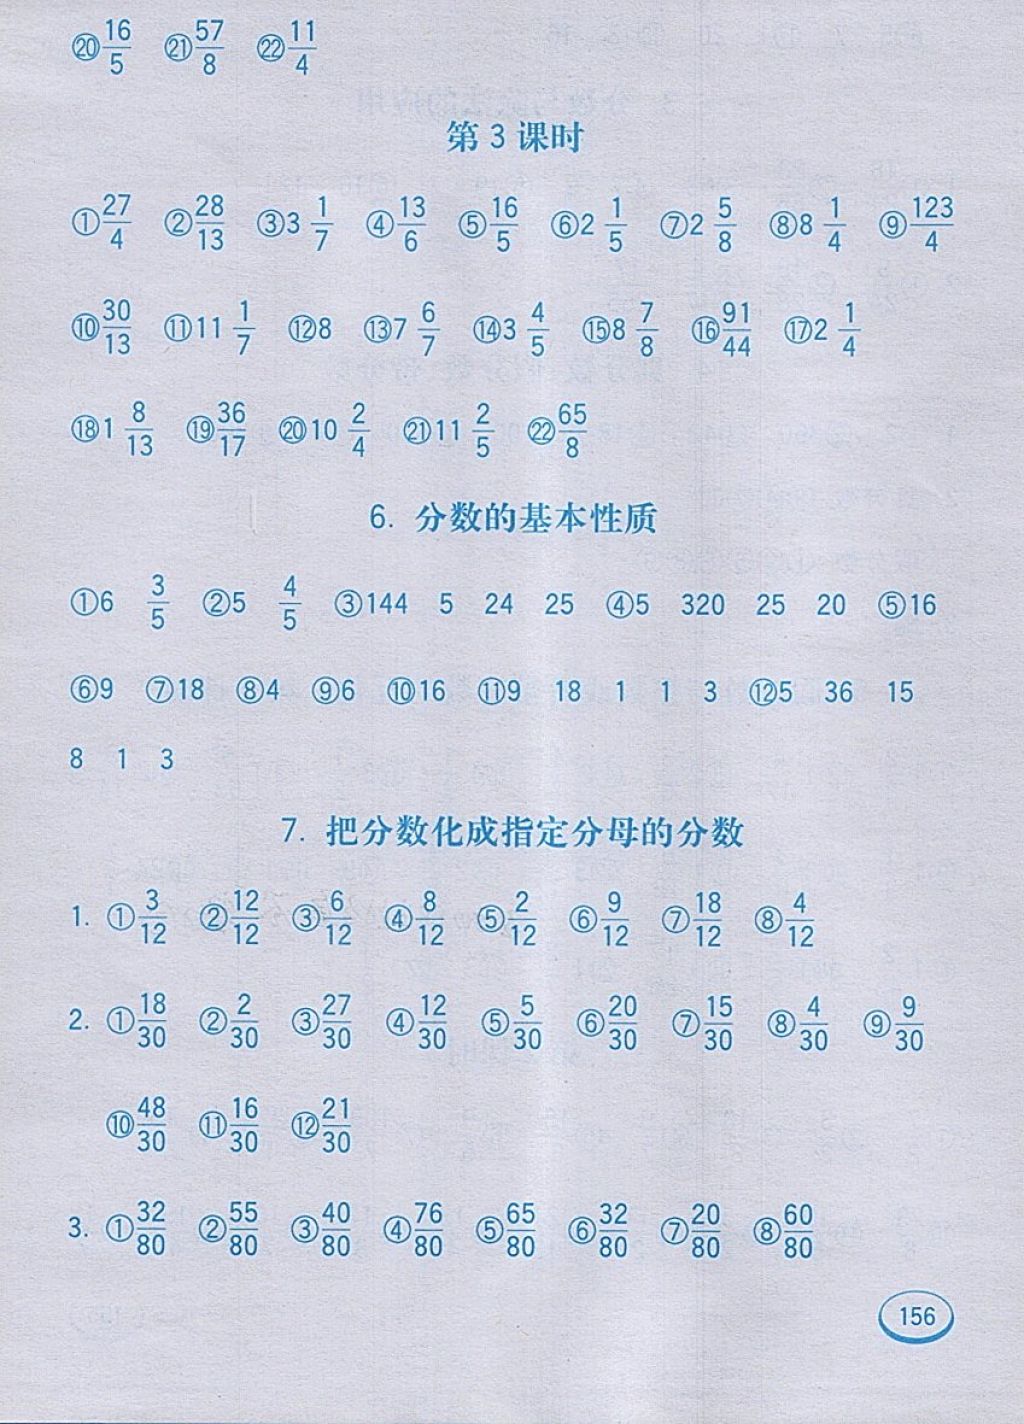 ⑳16/5 ㉑57/8 ㉒11/4
第3课时
①27/4 ②28/13 ③3 1/7 ④13/6 ⑤16/5 ⑥2 1/5 ⑦2 5/8 ⑧8 1/4 ⑨123/4
⑩30/13 ⑪11 1/7 ⑫8 ⑬7 6/7 ⑭3 4/5 ⑮8 7/8 ⑯91/44 ⑰2 1/4
⑱1 8/13 ⑲36/17 ⑳10 2/4 ㉑11 2/5 ㉒65/8
6. 分数的基本性质
①6 3/5 ②5 4/5 ③144 5 24 25 ④5 320 25 20 ⑤16
⑥9 ⑦18 ⑧4 ⑨6 ⑩16 ⑪9 18 1 1 3 ⑫5 36 15
8 1 3
7. 把分数化成指定分母的分数
1. ①3/12 ②12/12 ③6/12 ④8/12 ⑤2/12 ⑥9/12 ⑦18/12 ⑧4/12
2. ①18/30 ②2/30 ③27/30 ④12/30 ⑤5/30 ⑥20/30 ⑦15/30 ⑧4/30 ⑨9/30
⑩48/30 ⑪16/30 ⑫21/30
3. ①32/80 ②55/80 ③40/80 ④76/80 ⑤65/80 ⑥32/80 ⑦20/80 ⑧60/80
156